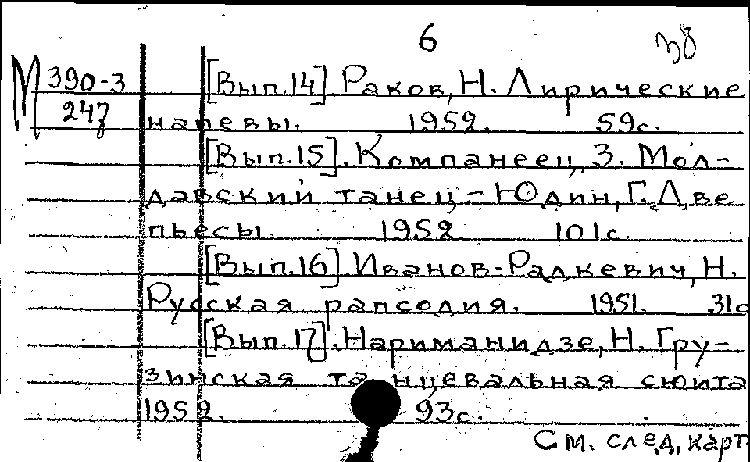 6 38
М 390-3 [Вып.14]. Раков, Н. Лирические
247 напевы. 1952. 59с.
[Вып.15]. Компанеец, З. Мол-
давский танец – Юдин, Г. Две
пьесы. 1952 101с.
[Вып.16]. Иванов-Радкевич, Н.
Русская рапсодия. 1951. 31с
[Вып.17]. Нариманидзе, Н. Гру-
зинская танцевальная сюита
1952. 93с.
См. след. карт.